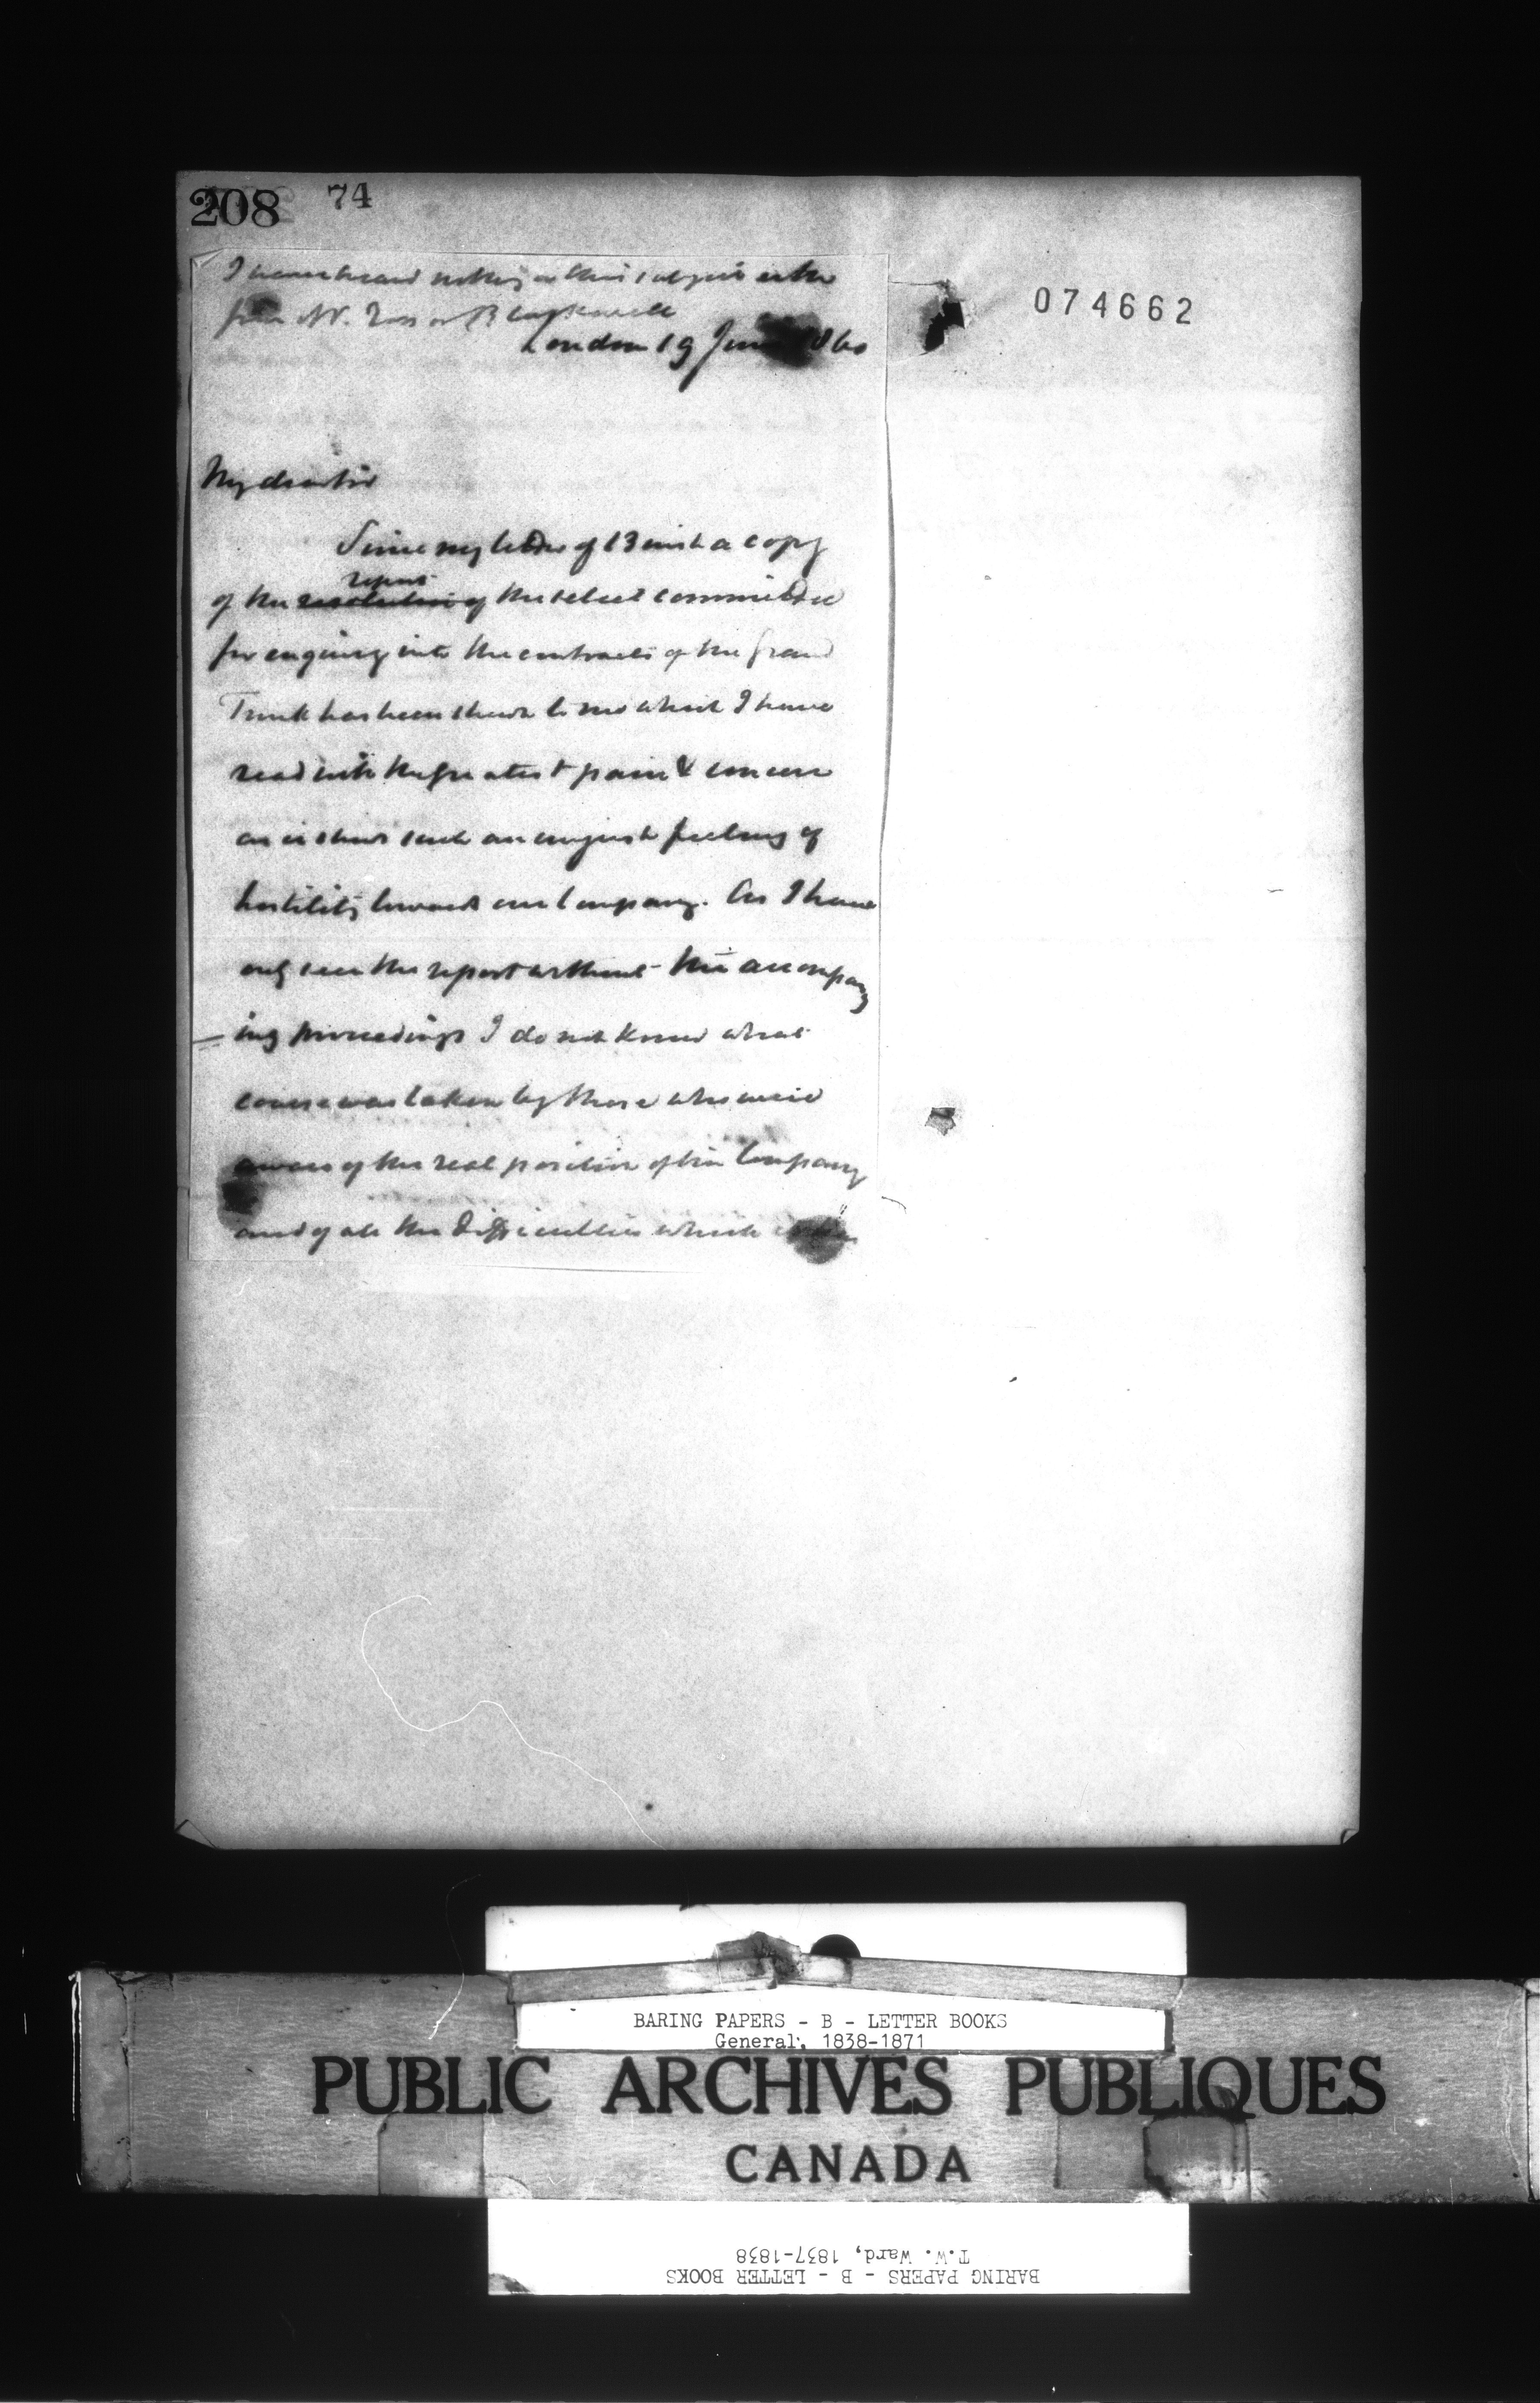 208 74
074662
I have heard nothing on this subject either
from Mr. Ross or Blackwell
London 19 June 1860
My dear Sir
Since my letter of 13 inst a copy
report
of the resolution of the select committee
for enquiry into the contracts of the Grand
Trunk has been shewn to me which I have
read with the greatest pain & concern
as it shews such an unjust feeling of
hostility towards our Company. As I have
only seen the report without the accompany
=ing proceedings I do not know what
course was taken by those who were
aware of the real position of the Company
and of all the difficulties which
BARING PAPERS - B - LETTER BOOKS
General, 1838-1871
PUBLIC ARCHIVES PUBLIQUES
CANADA
BARING PAPERS - B - LETTER BOOKS
T.W. Ward, 1837-1838